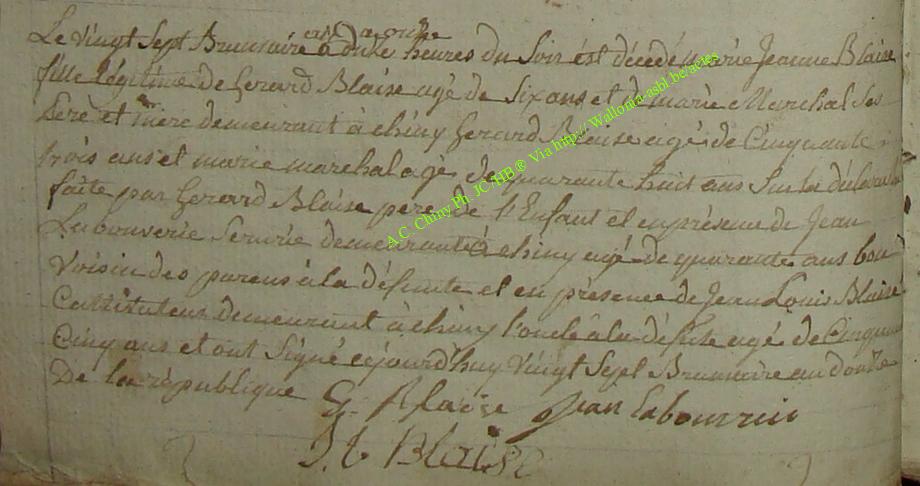 Le Vingt Sept Brumaire à onze heures du Soir est décédé marie Jeanne Blaise
fille légitime de Gerard Blaise agé de Six ans et de marie Marchal Ses
Pere et mere demeurant à chiny Gerard Blaise agé de Cinquante
trois ans et marie marchal agé de quarante huit ans Sur la déclaration
faite par Gerard Blaise pere de l'Enfant et en présence de Jean
demeurant à chiny agé de quarante ans bon
Voisin des parens à la défunte et en présence de Jean Louis Blaise
demeurant à chiny l'oncle à la défunte agé de Cinquante
Cinq ans et ont Signé cejourd'huy Vingt Sept Brumaire an douze
De la république G. Blaise Jean
J L Blaise
A.C. Chiny Ph. JC/HB® Via http://Wallonia-asbl.be/actes